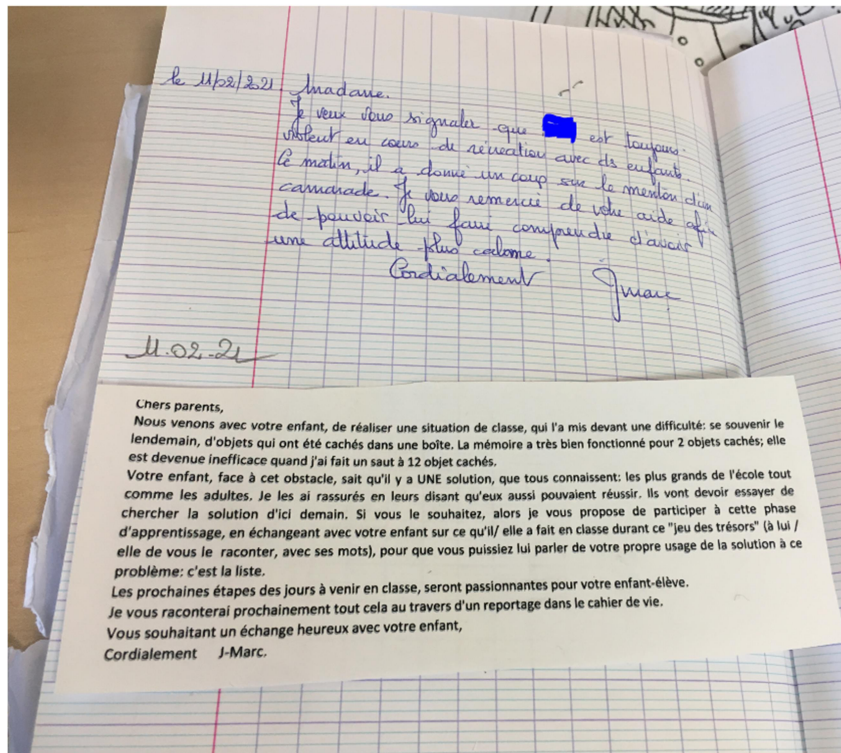 le 11/02/2021 Madame.
Je veux vous signaler que est toujours
violent en cours de récréation avec ds enfants.
Ce matin, il a donné un coup sur le menton d'un
camarade. Je vous remercie de votre aide afin
de pouvoir lui faire comprendre d'avoir
une attitude plus calme.
Cordialement Jmarc
11.02-21
Chers parents,
Nous venons avec votre enfant, de réaliser une situation de classe, qui l'a mis devant une difficulté: se souvenir le
lendemain, d'objets qui ont été cachés dans une boîte. La mémoire a très bien fonctionné pour 2 objets cachés; elle
est devenue inefficace quand j'ai fait un saut à 12 objet cachés.
Votre enfant, face à cet obstacle, sait qu'il y a UNE solution, que tous connaissent: les plus grands de l'école tout
comme les adultes. Je les ai rassurés en leurs disant qu'eux aussi pouvaient réussir. Ils vont devoir essayer de
chercher la solution d'ici demain. Si vous le souhaitez, alors je vous propose de participer à cette phase
d'apprentissage, en échangeant avec votre enfant sur ce qu'il/ elle a fait en classe durant ce "jeu des trésors" (à lui /
elle de vous le raconter, avec ses mots), pour que vous puissiez lui parler de votre propre usage de la solution à ce
problème: c'est la liste.
Les prochaines étapes des jours à venir en classe, seront passionnantes pour votre enfant-élève.
Je vous raconterai prochainement tout cela au travers d'un reportage dans le cahier de vie.
Vous souhaitant un échange heureux avec votre enfant,
Cordialement J-Marc.